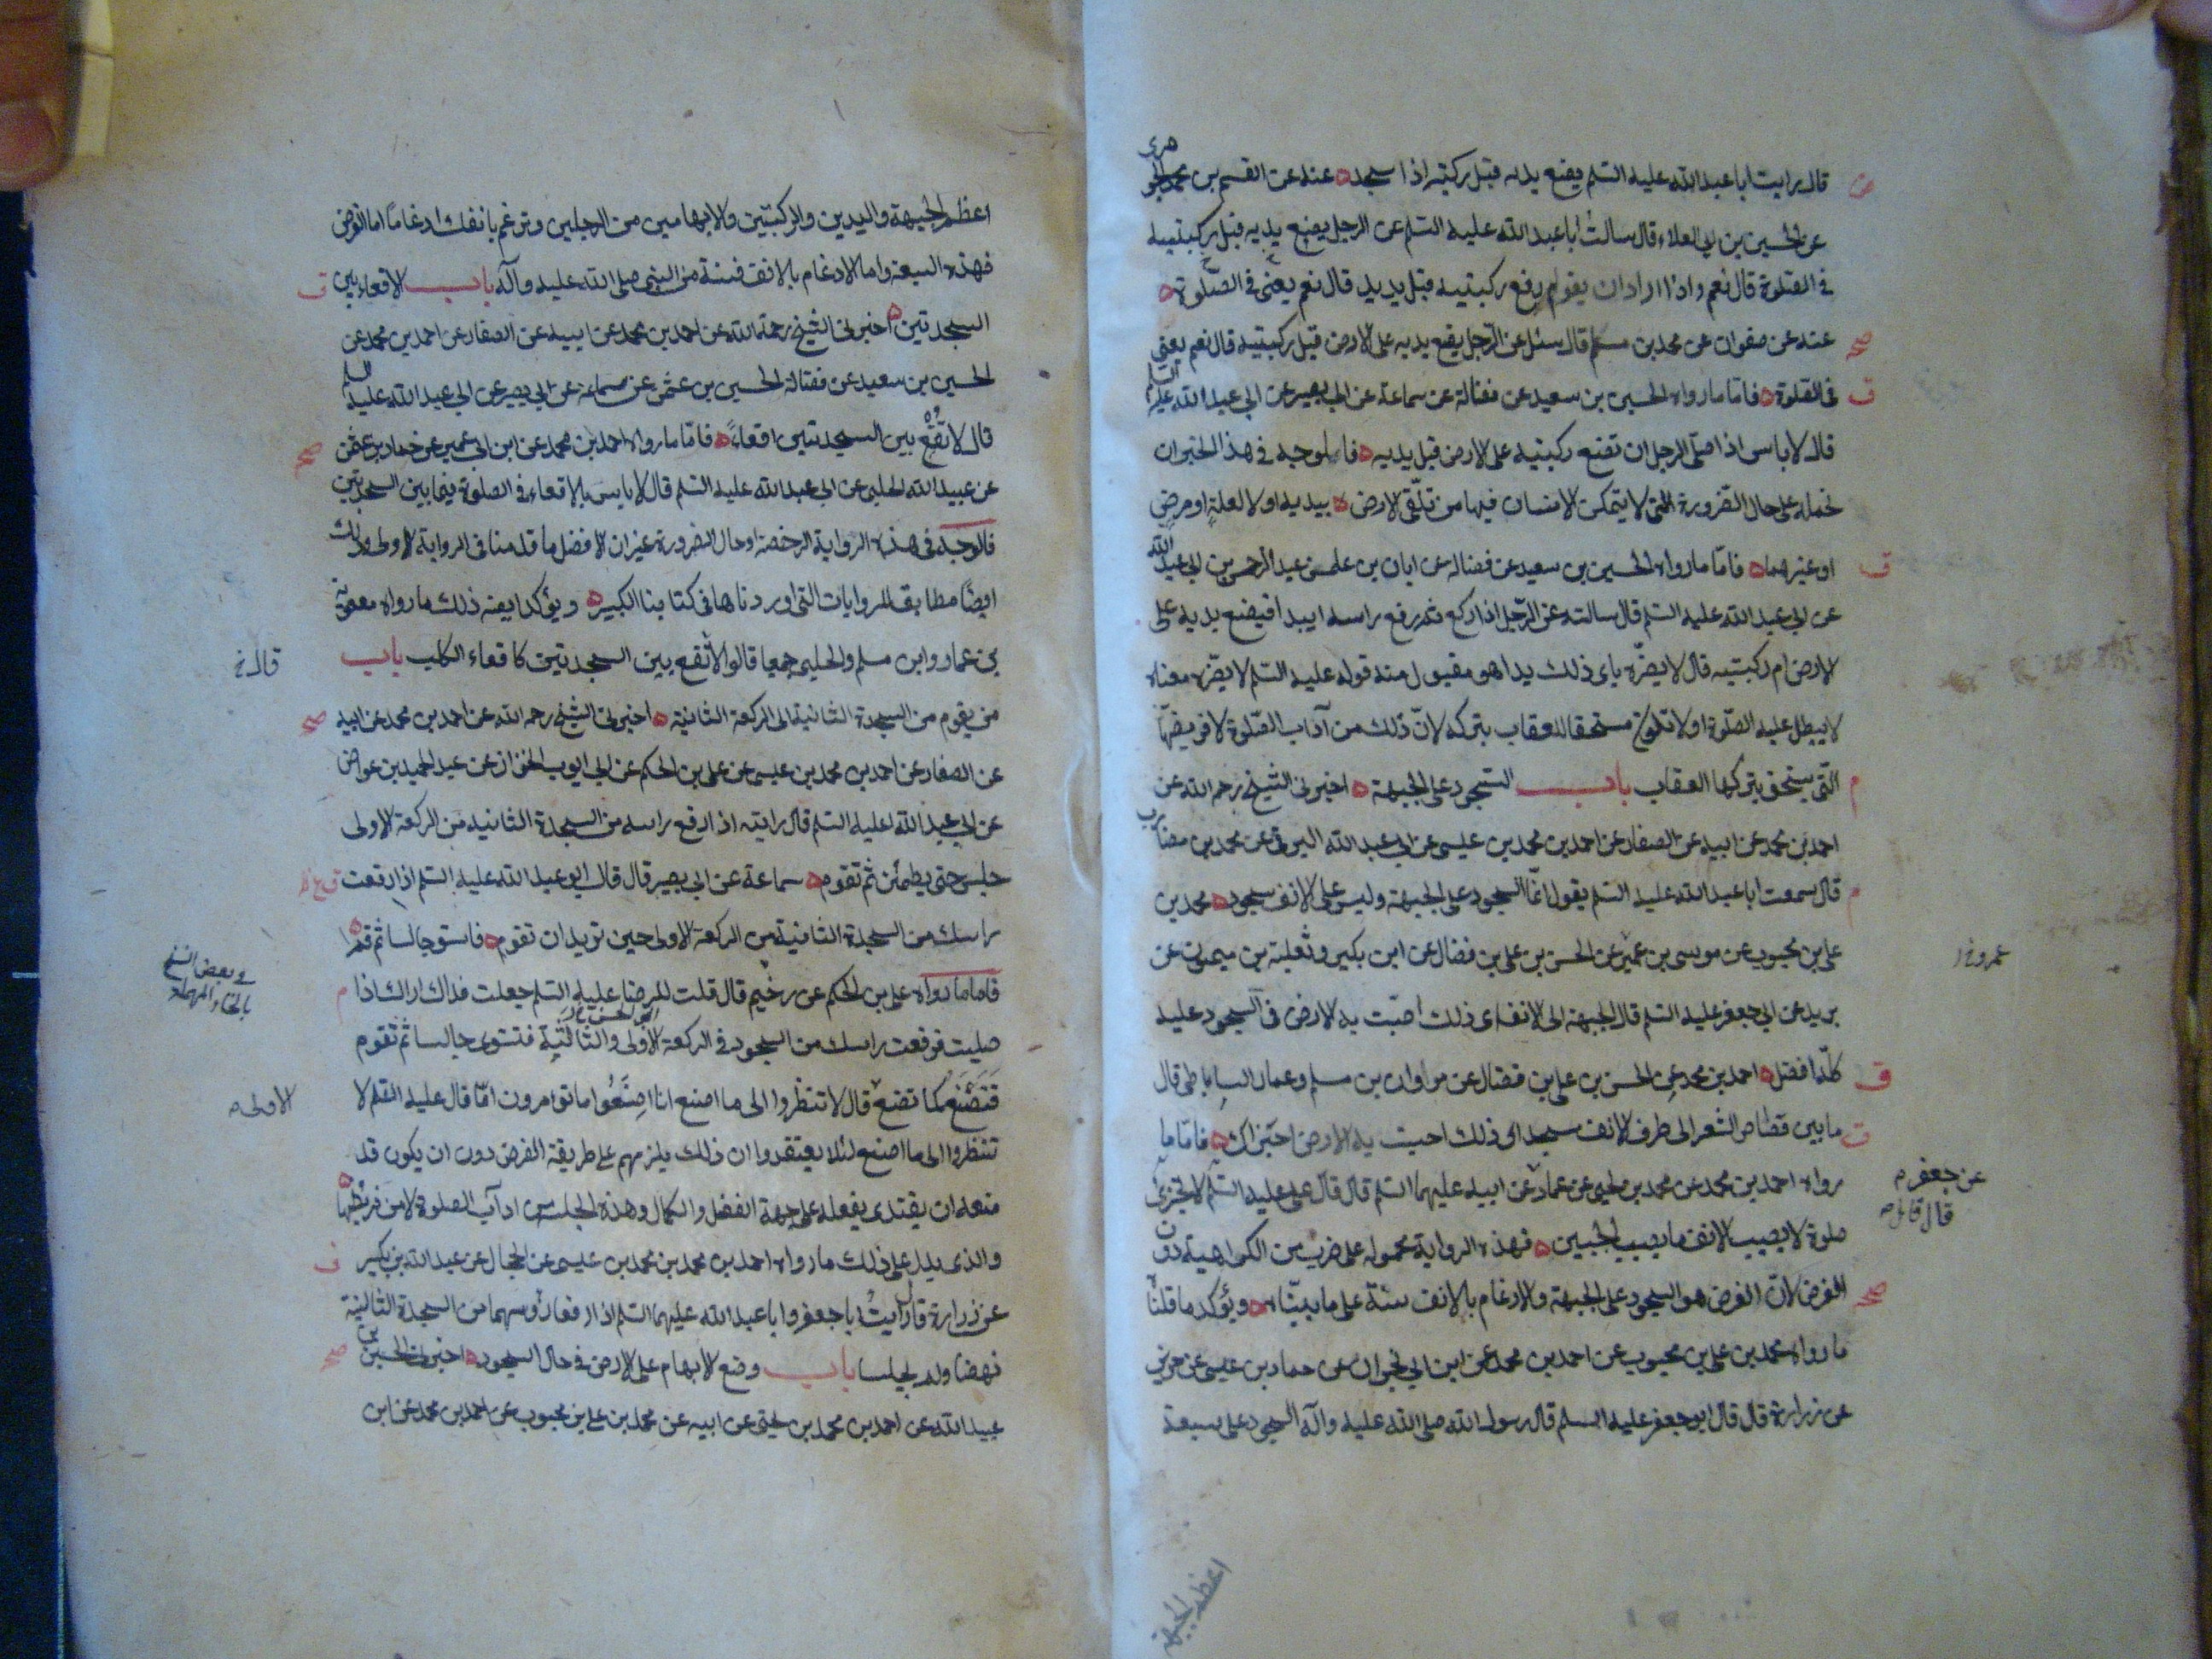 قال رايت ابا عبد الله عليه السلم يضع يديه قبل ركبتيه اذا سجد عنه عن القسم بن محمد الجوهرى
عن الحسين بن ابى العلاء قال سالت ابا عبد الله عليه السلم عن الرجل يضع يديه قبل ركبتيه
فى الصلوة قال نعم واذا اراد ان يقوم رفع ركبتيه قبل يديه قال نعم يعنى فى الصلوة
صح عنه عن صفوان عن محمد بن مسلم قال سئل عن الرجل يضع يديه على الارض قبل ركبتيه قال نعم يعنى
ق فى الصلوة فاما ما رواه الحسين بن سعيد عن فضالة عن سماعة عن ابى بصير عن ابى عبد الله عليه السلم
قال لا باس اذا صلى الرجل ان تضع ركبتيه على الارض قبل يديه فالوجه فى هذا الخبر ان
نحمله على حال الضرورة التى لا يتمكن الانسان فيها من تلقى الارض بيديه اولا لعلة او مرض
ق او غيرهما فاما ما رواه الحسين بن سعيد عن فضالة عن ابان بن عبد الرحمن بن ابى عبد الله
عن ابى عبد الله عليه السلم قال سالته عن الرجل اذا ركع ثم رفع راسه ايبدا فيضع يديه على
الارض ام ركبتيه قال لا يضره باى ذلك بدا هو مقبول منه قوله عليه السلم لا يضره معناه
لا يبطل عليه الصلوة اولا يكون مستحقا للعقاب بتركه لان ذلك من آداب الصلوة لا فريضتها
م التى يستحق بتركها العقاب باب السجود على الجبهة اخبرنى الشيخ رحمه الله عن
احمد بن محمد عن ابيه عن الصفار عن احمد بن محمد بن عيسى عن ابى عبد الله البرقى عن محمد بن مضارب
م قال سمعت ابا عبد الله عليه السلم يقول انما السجود على الجبهة وليس على الانف سجود محمد بن
على بن محبوب عن موسى بن عمير عن الحسن بن على بن فضال عن ابن بكير وثعلبة بن ميمون عن
عمرو خ
بريد عن ابى جعفر عليه السلم قال الجبهة الى الانف اى ذلك اصبت به الارض فى السجود عليه
ق كله افضل احمد بن محمد عن الحسن بن على بن فضال عن مروان بن مسلم وعمار الساباطى قال
ت ما بين قصاص الشعر الى طرف الانف سجد اى ذلك اصبت به الارض اجزاك فاما ما
رواه احمد بن محمد عن محمد بن يحيى عن عمار عن ابيه عليهما السلم قال قال على عليه السلم لا تجزى
عن جعفر م
صلوة لا يصيب الانف ما يصيب الجبين فهذه الرواية محمولة على ضرب من الكراهية دون
صح الفرض لان الفرض هو السجود على الجبهة والارغام بالانف سنة على ما بيناه ويؤكد ما قلنا
ما رواه محمد بن على بن محبوب عن احمد بن محمد عن ابن ابى نجران عن حماد بن عيسى عن حريز
عن زرارة قال قال ابو جعفر عليه السلم قال رسول الله صلى الله عليه وآله السجود على سبعة
اعظم الجبهة
اعظم الجبهة واليدين والركبتين والابهامين من الرجلين وترغم بانفك ارغاما اما الفرض
فهذه السبعة واما الارغام بالانف فسنة من النبى صلى الله عليه وآله باب الاقعاء بين ق
السجدتين اخبرنى الشيخ رحمه الله عن احمد بن محمد عن ابيه عن الصفار عن احمد بن محمد عن
الحسين بن سعيد عن فضالة الحسين بن عثمن عن سماعة عن ابى بصير عن ابى عبد الله عليه السلم
قال لا تقع بين السجدتين اقعاء فاما ما رواه احمد بن محمد عن ابن ابى عمير عن حماد بن عثمن صح
عن عبيد الله الحلبى عن ابى عبد الله عليه السلم قال لا باس بالاقعاء فى الصلوة فيما بين السجدتين
فالوجه فى هذه الرواية الرخصة او حال الضرورة غير ان الافضل ما قدمنا فى الرواية الاولى وذلك
ايضا مطابق للروايات التى اوردناها فى كتابنا الكبير ويؤكد ايضه ذلك ما رواه معوية
بن عمار وابن مسلم والحلبى جميعا قالوا لا تقع بين السجدتين كاقعاء الكلب باب
قال خ
من يقوم من السجدة الثانية الى الركعة الثانية اخبرنى الشيخ رحمه الله عن احمد بن محمد عن ابيه صح
عن الصفار عن احمد بن محمد بن عيسى عن على بن الحكم عن ابى ايوب الخزاز عن عبد الحميد بن عواض
عن ابى عبد الله عليه السلم قال رايته اذا رفع راسه من السجدة الثانية من الركعة الاولى
جلس حتى يطمئن ثم تقوم سماعة عن ابى بصير قال قال ابو عبد الله عليه السلم اذا رفعت
راسك من السجدة الثانية من الركعة الاولى حين تريد ان تقوم فاستو جالسا ثم قم
فى بعض النسخ
بالحاء المهملة
فاما ما رواه على بن الحكم عن رخيم قال قلت للرضا عليه السلم جعلت فداك اراك اذا م
صليت فرفعت راسك من السجود فى الركعة الاولى والثالثة فتستوى جالسا ثم تقوم
فنصنع كما تصنع قال لا تنظروا الى ما اصنع انا اصنعوا ما تؤمرون انما قال عليه السلم لا
الاولى
تنظروا الى ما اصنع لئلا يعتقدوا ان ذلك يلزمهم على طريقة الفرض دون ان يكون قد
منعه ان يقتدى بفعله على جهة الفضل والكمال وهذه الجلسة من آداب الصلوة لا من فريضتها
والذى يدل على ذلك ما رواه احمد بن محمد بن محمد بن عيسى عن الحجال عن عبد الله بن بكير ف
عن زرارة قال رايت ابا جعفر وابا عبد الله عليهما السلم اذا رفعا رؤسهما من السجدة الثانية
نهضا ولم يجلسا باب وضع الابهام على الارض فى حال السجود اخبرنى الحسين بن صح
عبيد الله عن احمد بن محمد بن يحيى عن ابيه عن محمد بن على بن محبوب عن احمد بن محمد عن ابن